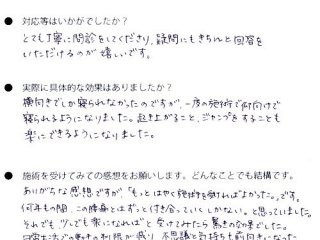 ● 対応等はいかがでしたか？
とても丁寧に問診をしてくださり、疑問にもきちんと回答を
いただけるのが嬉しいです。
● 実際に具体的な効果はありましたか？
横向きでしか寝られなかったのですが、一度の施術で仰向けで
寝られるようになりました。起き上がること、ジャンプをすることも
楽にできるようになりました。
● 施術を受けてみての感想をお願いします。どんなことでも結構です。
ありがちな感想ですが、「もっとはやく施術を受ければよかった。」です。
何年もの間、この腰痛とはずっと付き合っていくしかない。と思っていました。
それでも少しでも楽になればと受けてみたら驚きの効果でした。
日常生活での動きの制限が減り、不思議と気持ちも前向きになった